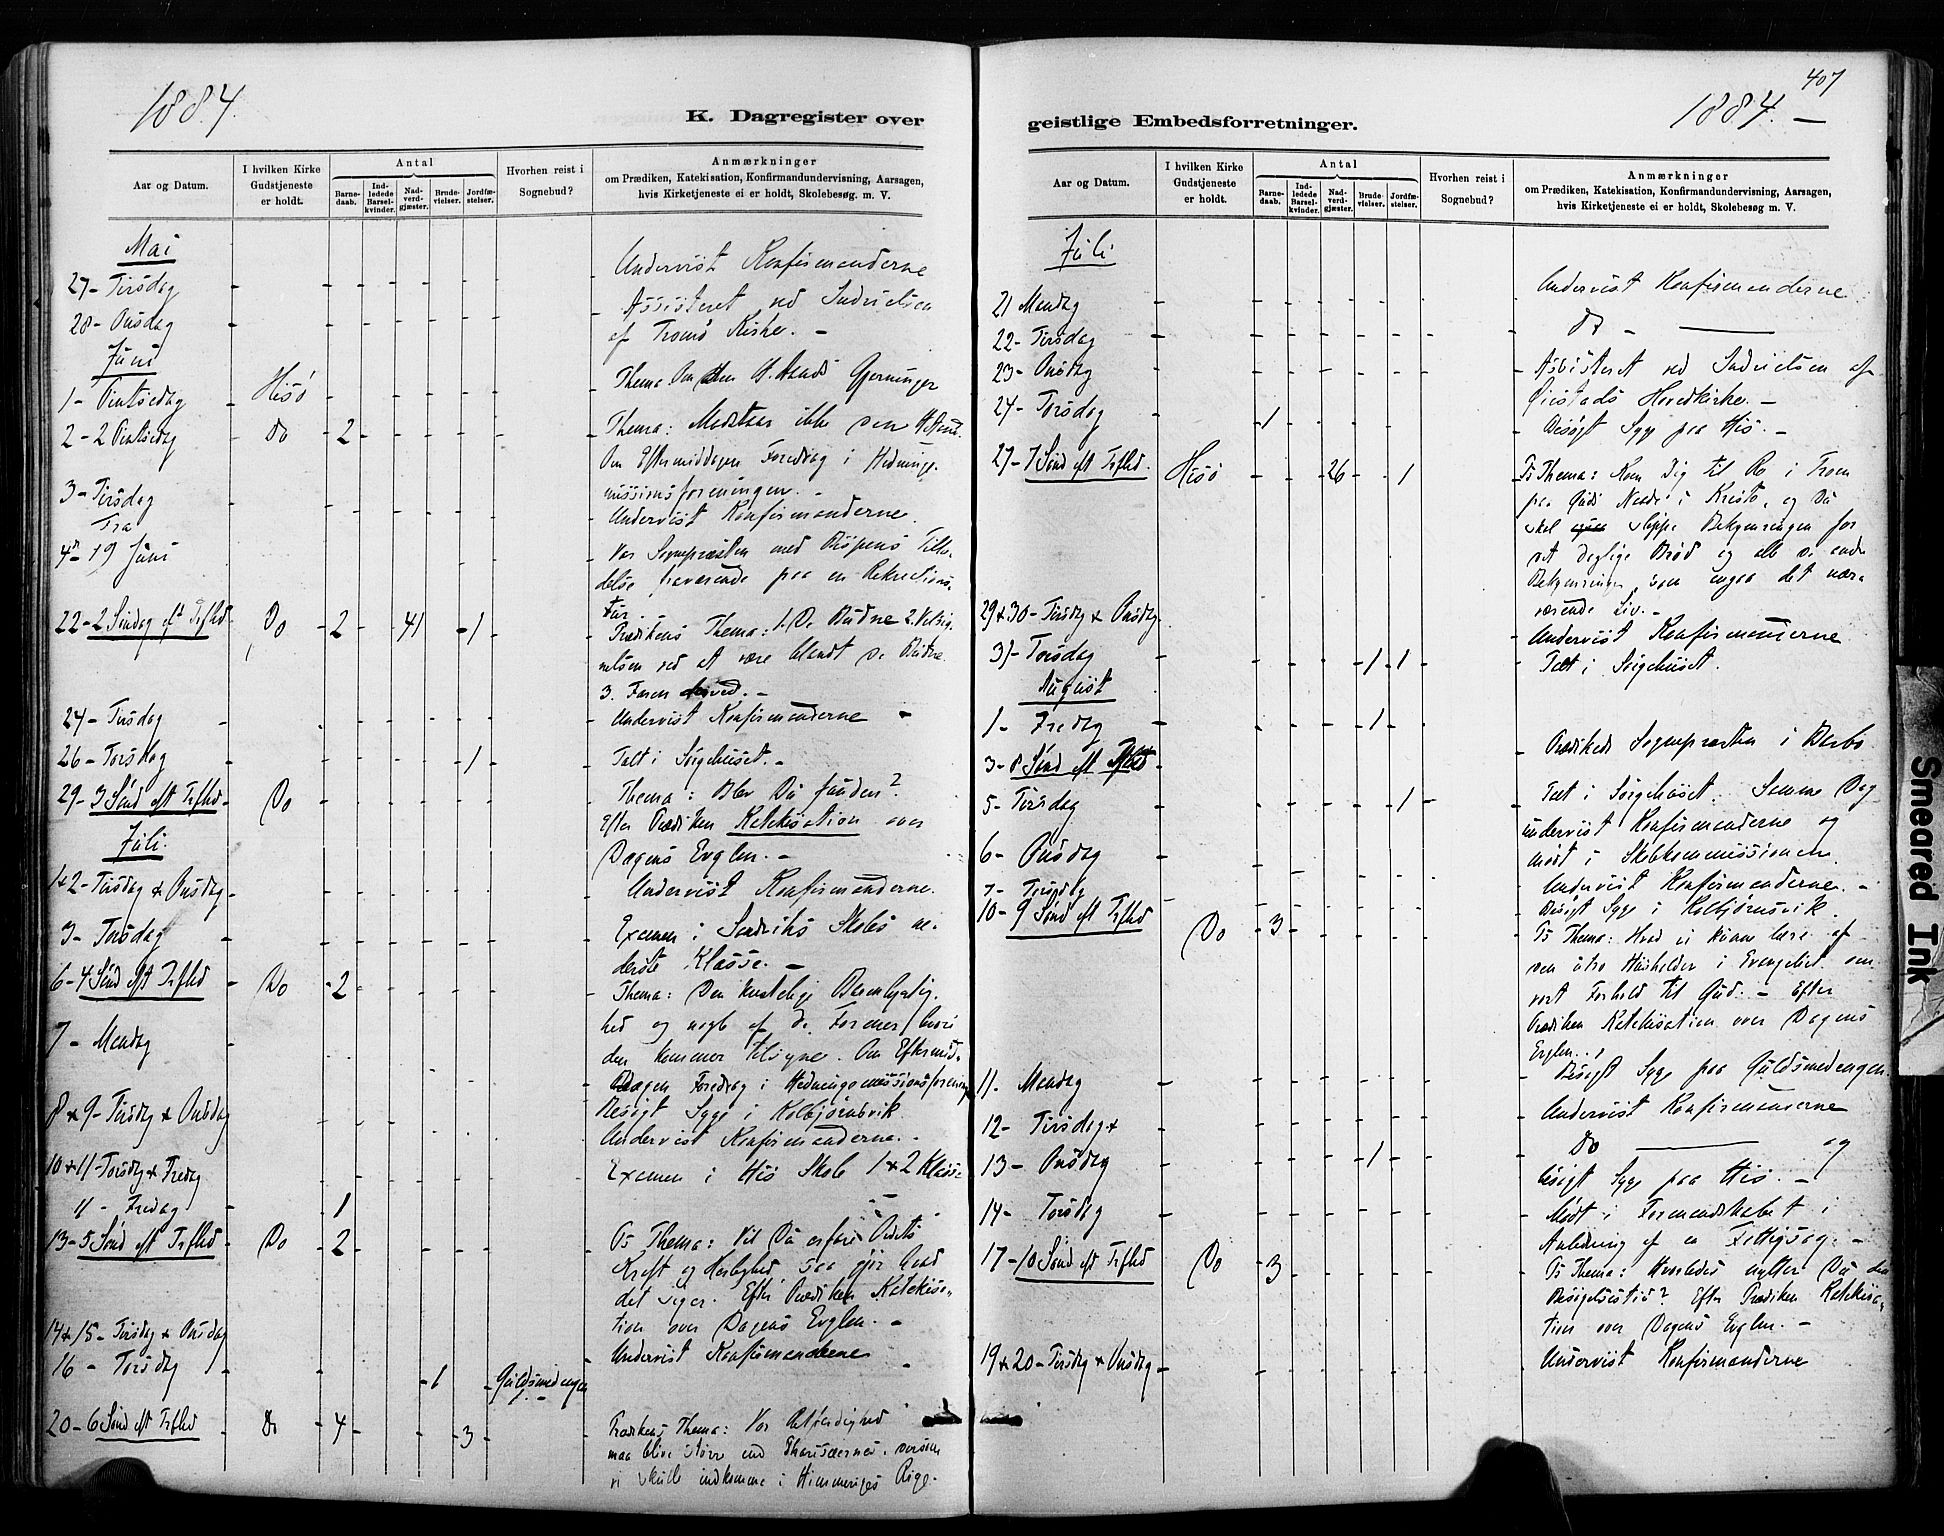 1884.
K. Dagregister over
Aar og Datum.
I hvilken Kirke Gudstjeneste er holdt.
Antal
Barnedaab.
Indledede Barselkvinder.
Nadverdgjæster.
Brudevielser.
Jordfæstelser.
Hvorhen reist i Sognebud?
Anmærkninger
om Prædiken, Katekisation, Konfirmandundervisning, Aarsagen,
hvis Kirketjeneste ei er holdt, Skolebesøg m. V.
Mai
27 - Tirsdag - - - - - - - Undervist Konfirmanderne
28 - Onsdag - - - - - - - Assisteret ved Indvielsen
af Tromø Kirke. -
Juni
1 - Pintsedag - Hisø - - - - - - Thema Om den H. Aands Gjerninger
2 - 2 Pintsedag - do - 2 - - - - - Thema: Modstaar ikke den H. Aand.
Om Eftermiddagen Foredrag i Hedninge-
missionsforeningen. -
3 - Tirsdag - - - - - - Undervist Konfirmanderne.
Fra
4de - 19 Juni - - - - - - Var Sognepræsten med Bispens Tilla-
delse fraværende paa en Rekreations-
tur. -
22 - 2 Søndag eft Trfhd - Do - 2 - - 41 - - 1 - Prædikens Thema: 1. De Budne 2. Velsig-
nelsen ved at være blandt de Budne.
3. Faren derved. -
24 - Tirsdag - - - - - - Undervist Konfirmanderne -
26 - Torsdag - - - - - 1 - Talt i Sørgehuset. -
29 - 3 Sønd eft Trfhd - Do - - - - - - Thema: Blev Du funden?
Efter Prædiken Katekisation over
Dagens Evglm. -
Juli.
1 & 2 - Tirsdag & Onsdag - - - - - - Undervist Konfirmanderne.
3 - Torsdag - - - - - - Examen i Sandviks Skoles ne-
derste Klasse. -
6 - 4 Sønd eft Trfhd - Do - 2 - - - - - Thema: Den kristelige Barmhjertig-
hed og nogle af de Former hvori
den kommer tilsyne. Om Eftermid-
dagen Foredrag i Hedningemissionsforening
7 - Mandag - - - - - - Besøgt Syge i Kolbjørnsvik.
8 & 9 - Tirsdag & Onsdag - - - - - - Undervist Konfirmanderne. -
10 & 11 - Torsdag & Fredag - - - - - - Examen i His Skole 1 & 2 Klasse
11 - Fredag - 1 - - - - -
13 - 5 Sønd eft Trfhd - Do - 2 - - - - - Ps Thema: Vil Du erfare Ordets
Kraft og Herlighed saa gjør hvad
det siger. Efter Prædiken Katekisa-
tion over Dagens Evglm. -
14 & 15 - Tirsdag & Onsdag - - - - - - Undervist Konfirmanderne
16 - Torsdag - - - - 1 - Guldsmedengen
20 - 6 Sønd eft Trfhd - Do - 4 - - - - 3 - Prædikens Thema: Vor Retfærdighed
maa blive større end Pharisæernes, dersom
vi skulle indkomme i Himmeriges Rige.
407
1884. -
geistlige Embedsforretninger.
Aar og Datum.
I hvilken Kirke Gudstjeneste er holdt.
Antal
Barnedaab.
Indledede Barselkvinder.
Nadverdgjæster.
Brudevielser.
Jordfæstelser.
Hvorhen reist i Sognebud?
Anmærkninger
om Prædiken, Katekisation, Konfirmandundervisning, Aarsagen,
hvis Kirketjeneste ei er holdt, Skolebesøg m. V.
Juli
21 Mandag - - - - - - Undervist Konfirmanderne
22 - Tirsdag - - - - - - do -
23 - Onsdag - - - - - - Assisteret ved Indvielsen af
Øiestads Hovedkirke. -
24 - Torsdag - 1 - - - - - Besøgt Syge paa His. -
27 - 7 Sønd eft Trfhd. Hisø - - 26 - - 1 - Ps Thema: Kom Dig til Ro i Troen
paa Guds Naade i Kristo, og Du
skal slippe Bekymringen for
det daglige Brød og alle de andre
Bekymringer som angaa det nær-
værende Liv. -
29 & 30 - Tirsdag & Onsdag - - - - - - Undervist Konfirmanderne
31 - Torsdag - - - - 1 - 1 - Talt i Sørgehuset.
August
1 - Fredag - - - - 1 -
3 - 8 Sønd eft Trfhd - - - - - - Prædikede Sognepræsten i Barbo
5 - Tirsdag - - - - - 1 - Talt i Sørgehuset. Samme Dag
undervist Konfirmanderne og
mødt i Skolekommissionen.
6 - Onsdag - - - - - - Undervist Konfirmanderne. -
7 - Torsdag - - - - - - Besøgt Syge i Kolbjørnsvik.
10 - 9 Sønd eft Trfhd Do - 3 - - - - - Ps Thema: Hvad vi kunne lære af
den utro Husholder i Evangeliet om
vort Forhold til Gud. - Efter
Prædiken Katekisation over Dagens
Evglm.
11. Mandag - - - - - - Besøgt Syge paa Guldsmedengen.
12 - Tirsdag & - - - - - - Undervist Konfirmanderne
13 - Onsdag - - - - 1 - Do og
besøgt Syge paa His. -
14 - Torsdag - - - - - - Mødt i Formandskabet i
Anledning af en Fattigsag. -
17 - 10 Sønd eft Trfhd Do - 3 - - - - - Ps Thema: Hvorledes nytter Du din
Besøgelsestid? Efter Prædiken Katekisa-
tion over Dagens Evglm. -
19 & 20 - Tirsdag & Onsdag - - - - - - Undervist Konfirmanderne
Smeared Ink